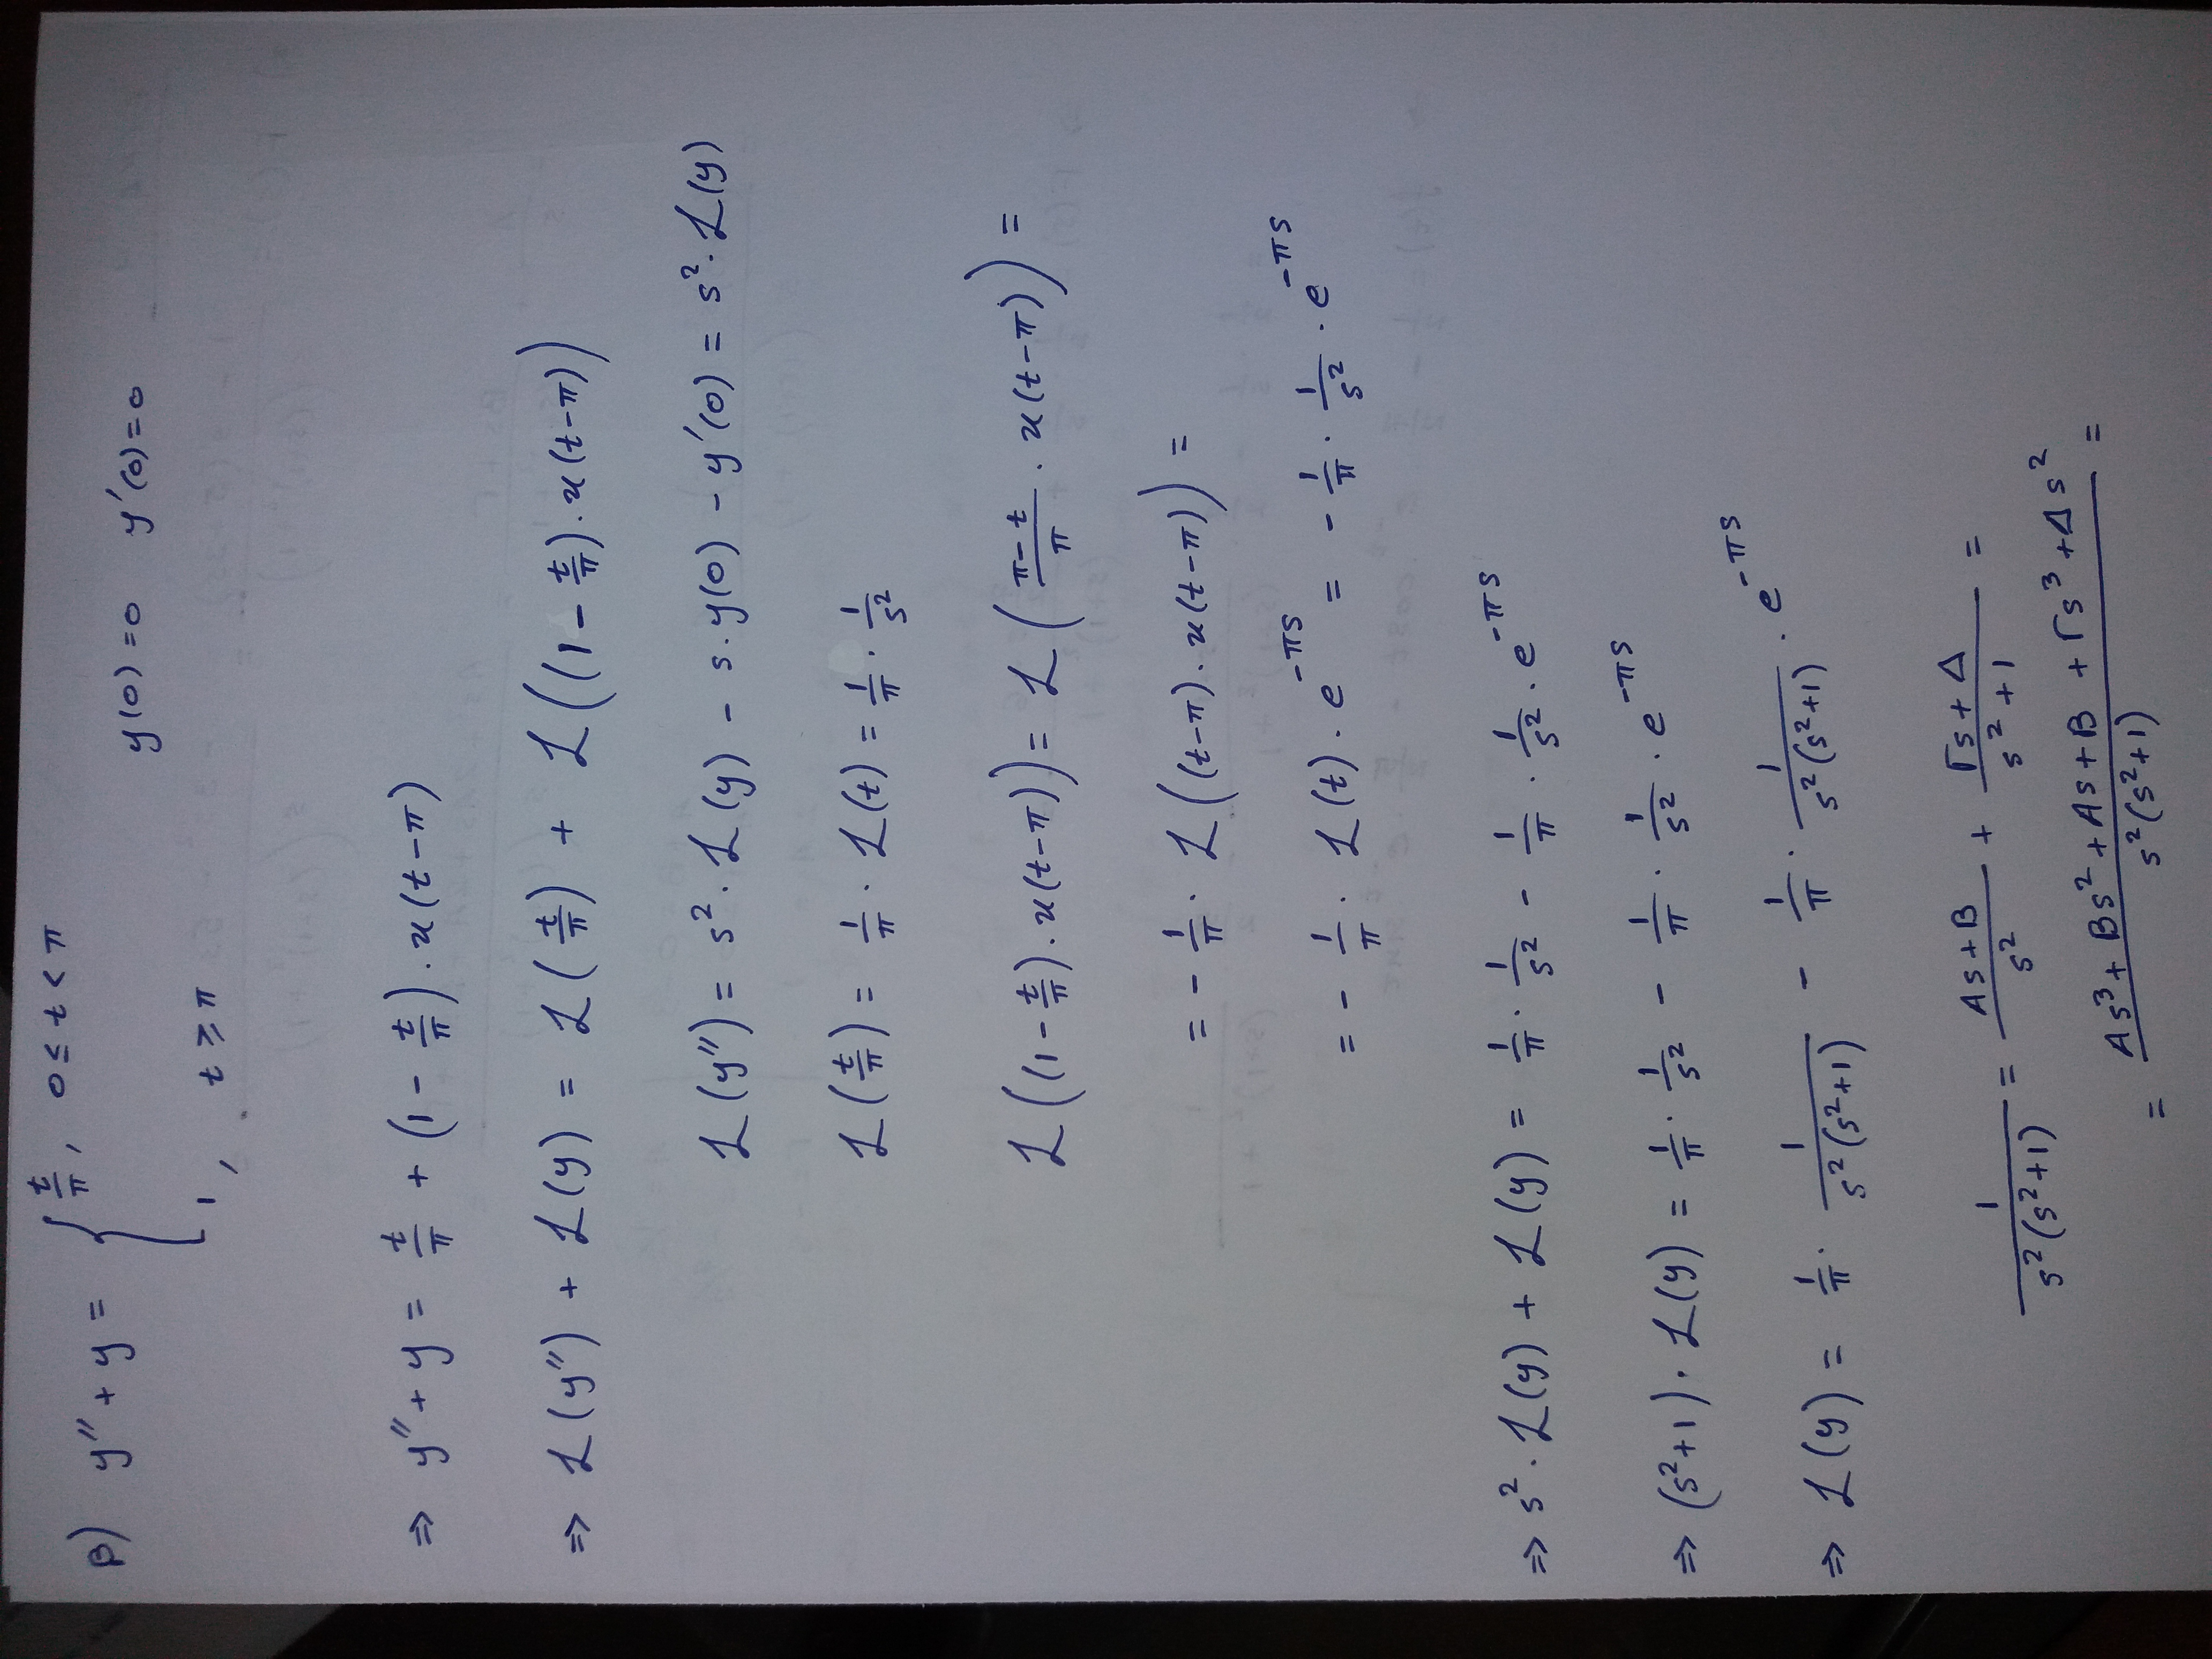 β) y'' + y = { t/π, 0 ≤ t < π
1, t ≥ π
y(0) = 0 y'(0) = 0
⇒ y'' + y = t/π + (1 - t/π) · u(t-π)
⇒ ℒ(y'') + ℒ(y) = ℒ(t/π) + ℒ((1 - t/π) · u(t-π))
ℒ(y'') = s² · ℒ(y) - s · y(0) - y'(0) = s² · ℒ(y)
ℒ(t/π) = 1/π · ℒ(t) = 1/π · 1/s²
ℒ((1 - t/π) · u(t-π)) = ℒ((π-t)/π · u(t-π)) =
= - 1/π · ℒ((t-π) · u(t-π)) =
= - 1/π · ℒ(t) · e^(-πs) = - 1/π · 1/s² · e^(-πs)
⇒ s² · ℒ(y) + ℒ(y) = 1/π · 1/s² - 1/π · 1/s² · e^(-πs)
⇒ (s²+1) · ℒ(y) = 1/π · 1/s² - 1/π · 1/s² · e^(-πs)
⇒ ℒ(y) = 1/π · 1/(s²(s²+1)) - 1/π · 1/(s²(s²+1)) · e^(-πs)
1/(s²(s²+1)) = (As+B)/s² + (Γs+Δ)/(s²+1) =
= (As³ + Bs² + As + B + Γs³ + Δs²)/(s²(s²+1)) =